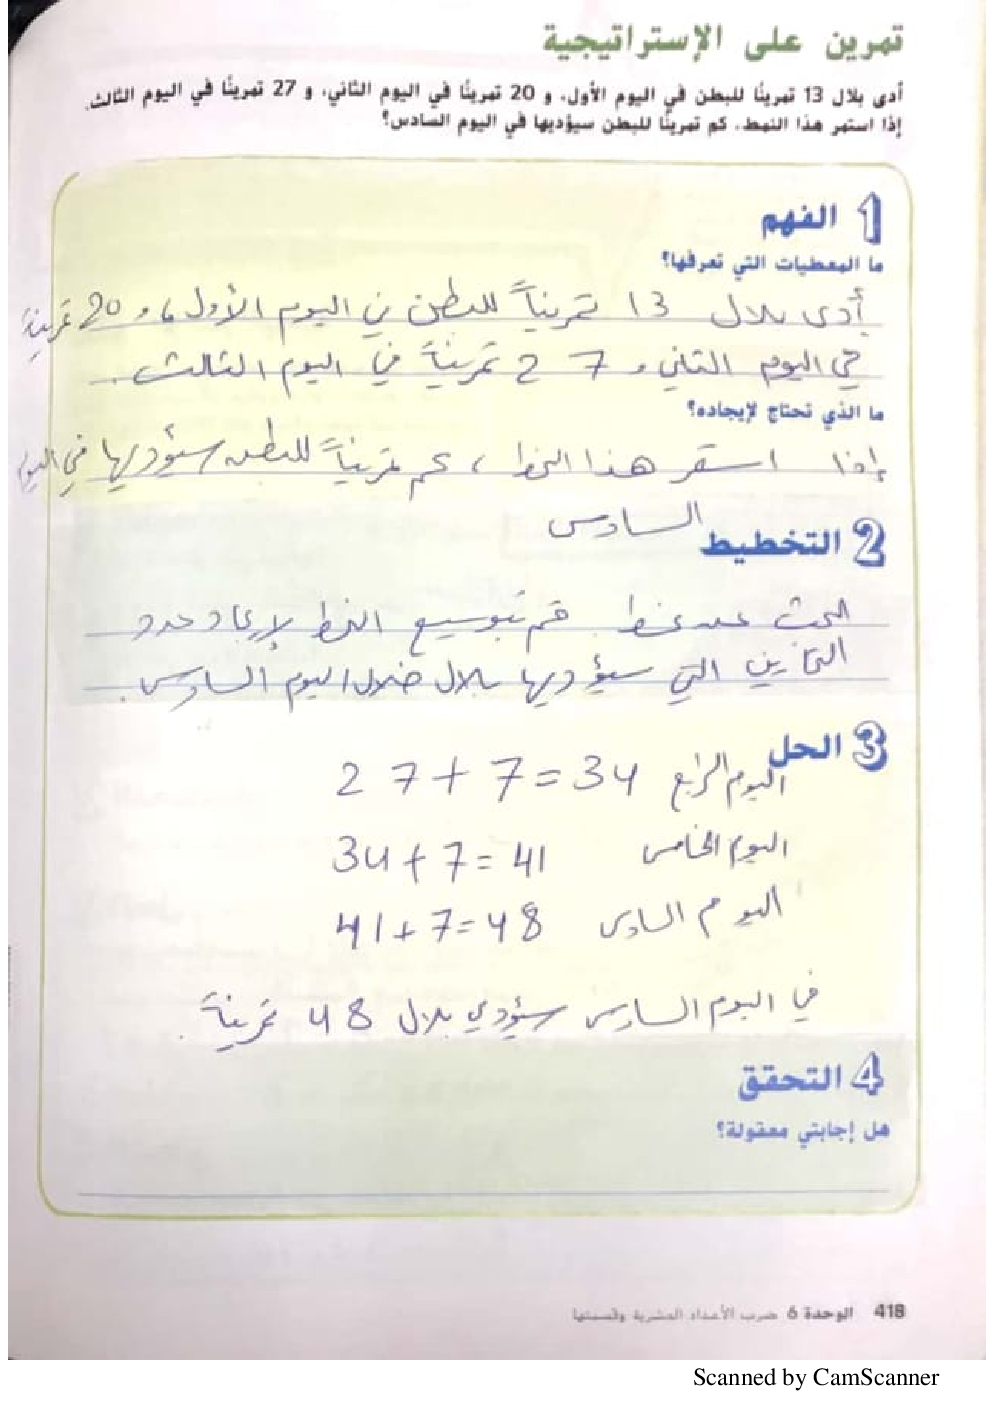 تمرين على الإستراتيجية
أدى بلال 13 تمرينًا للبطن في اليوم الأول، و 20 تمرينًا في اليوم الثاني، و 27 تمرينًا في اليوم الثالث.
إذا استمر هذا النمط، كم تمرينًا للبطن سيؤديها في اليوم السادس؟
1 الفهم
ما المعطيات التي تعرفها؟
أدى بلال 13 تمريناً للبطن في اليوم الأول، و 20 تمرينة
في اليوم الثاني و 27 تمرينة في اليوم الثالث.
ما الذي تحتاج لإيجاده؟
إذا استمر هذا النمط، كم تمريناً للبطن سيؤديها في اليوم
السادس
2 التخطيط
البحث عن نمط. قم بتوسيع النمط لإيجاد عدد
التمارين التي سيؤديها بلال خلال اليوم السادس.
3 الحل
اليوم الرابع 27+7=34
اليوم الخامس 34+7=41
اليوم السادس 41+7=48
في اليوم السادس سيؤدي بلال 48 تمرينة.
4 التحقق
هل إجابتي معقولة؟
418 الوحدة 6 ضرب الأعداد العشرية وقسمتها
Scanned by CamScanner